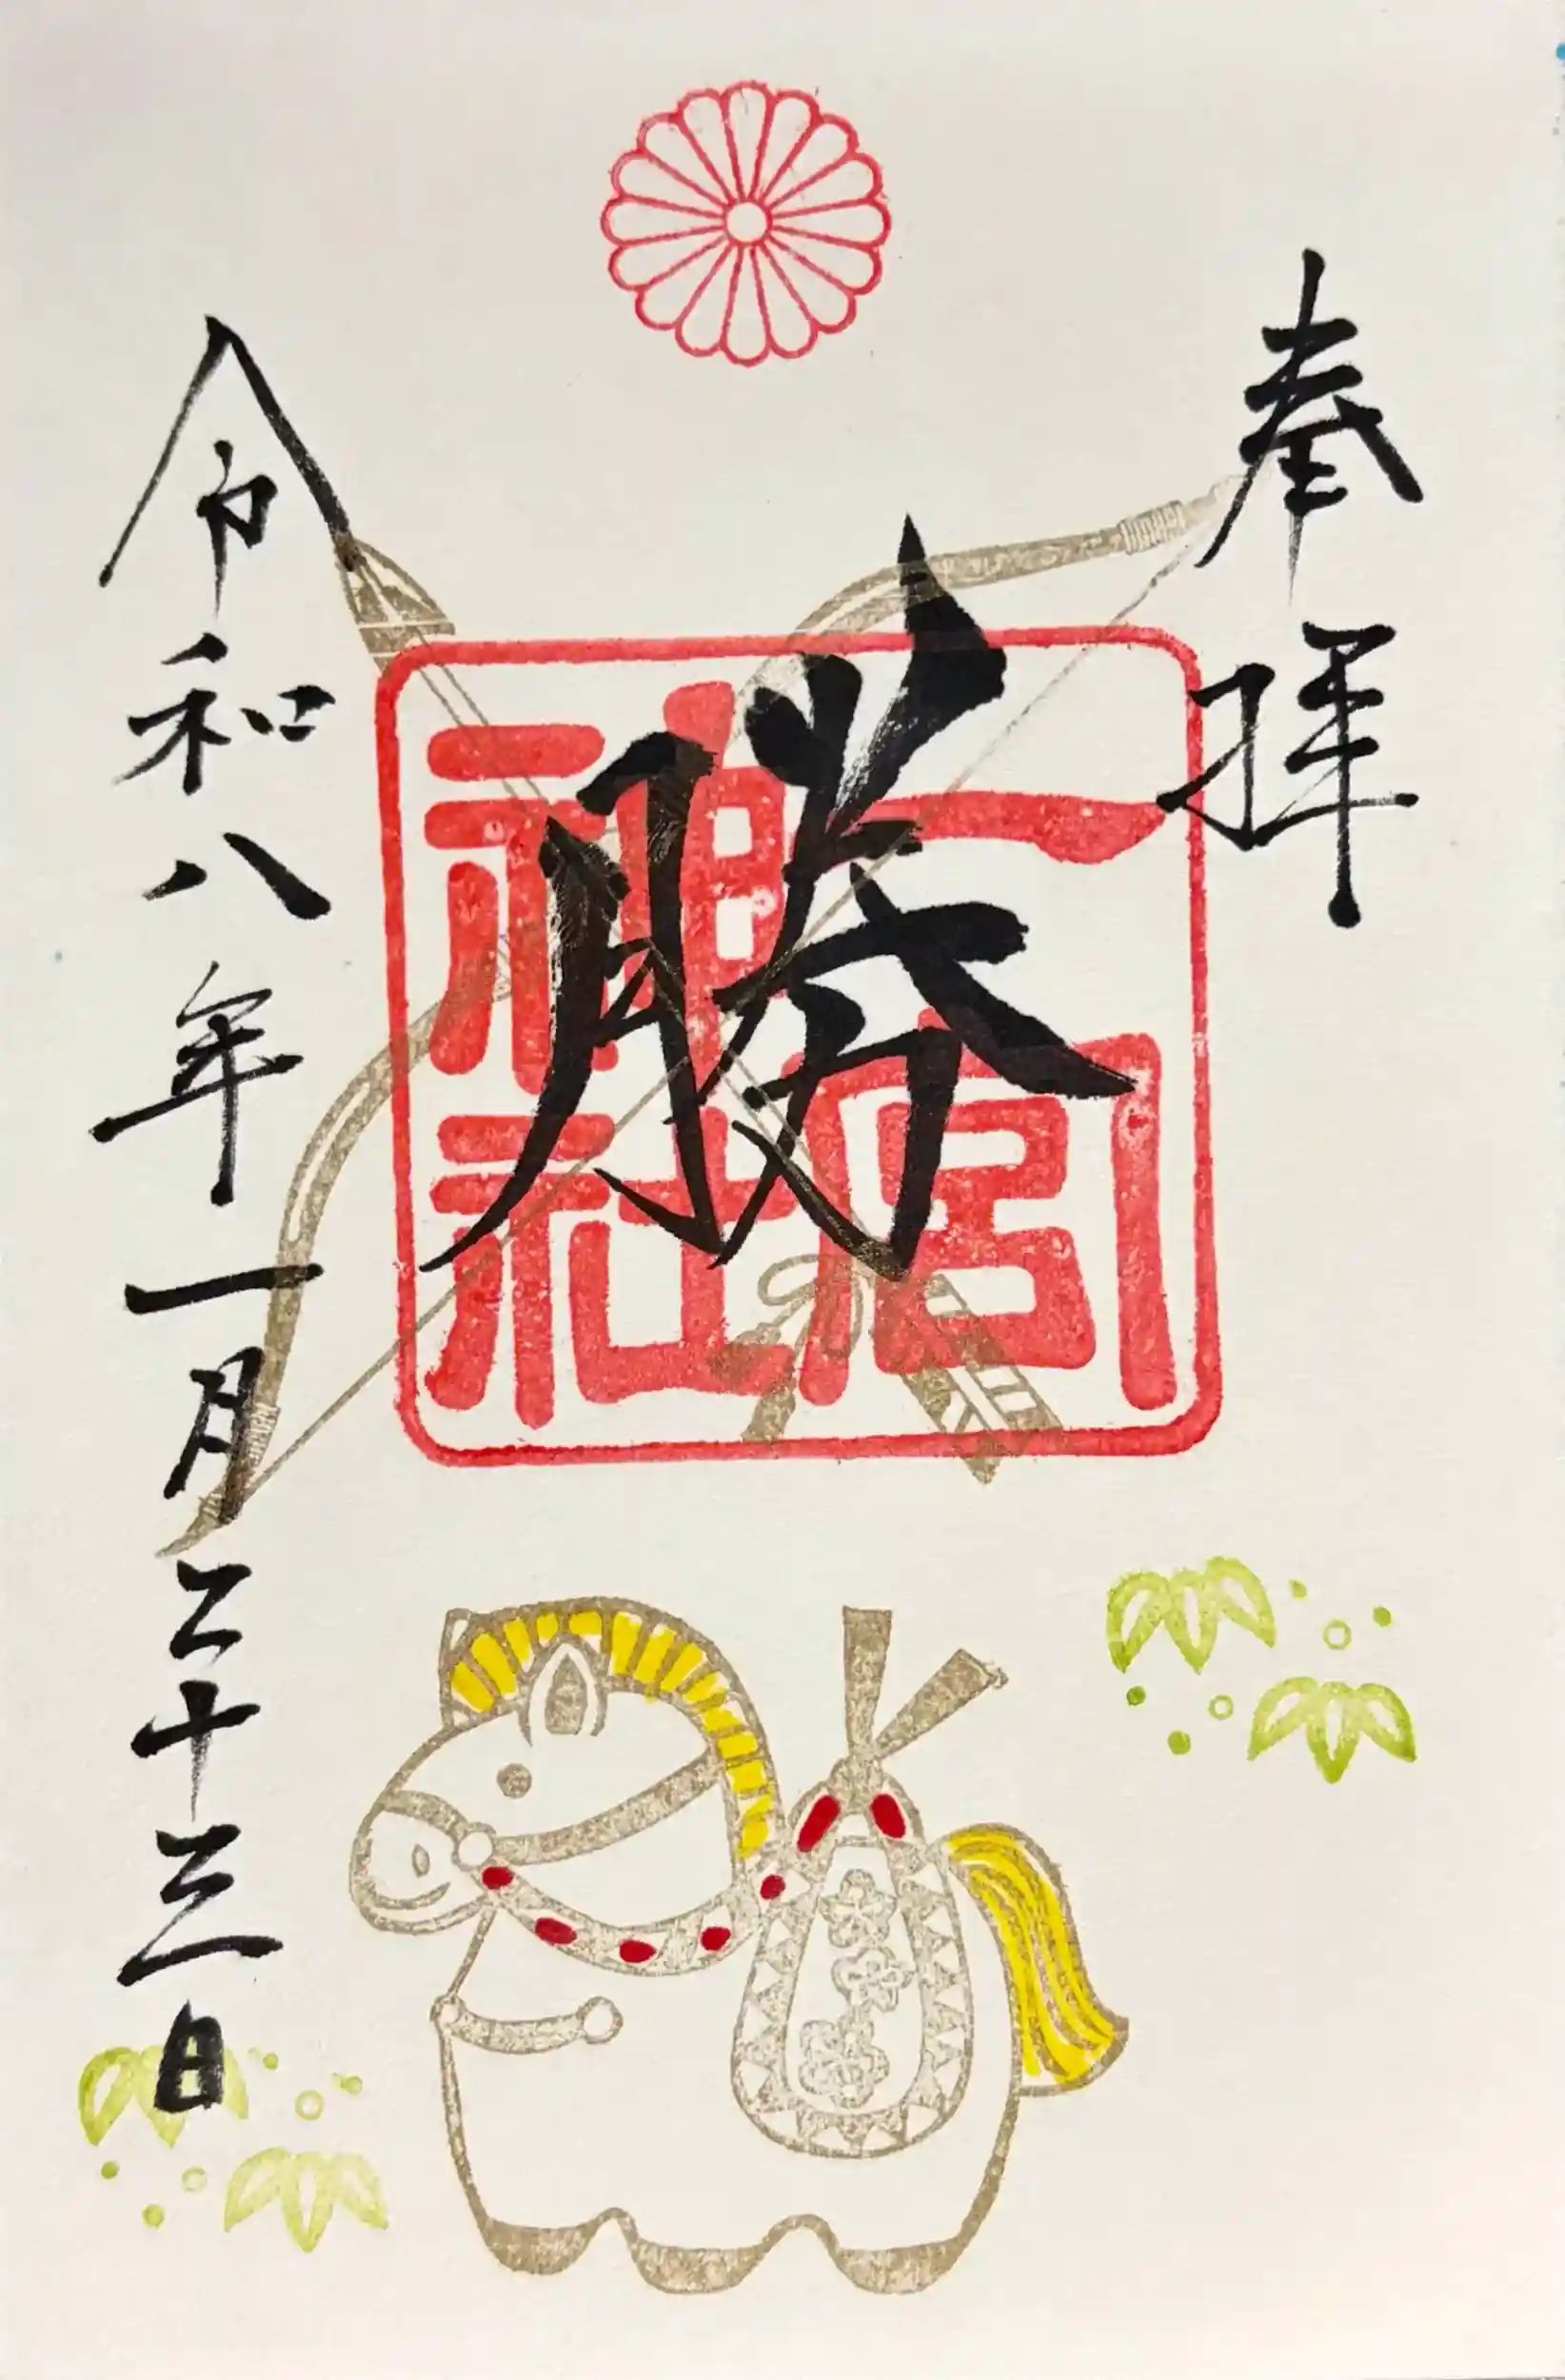 奉拝
勝
一宮神社
令和八年一月二十三日